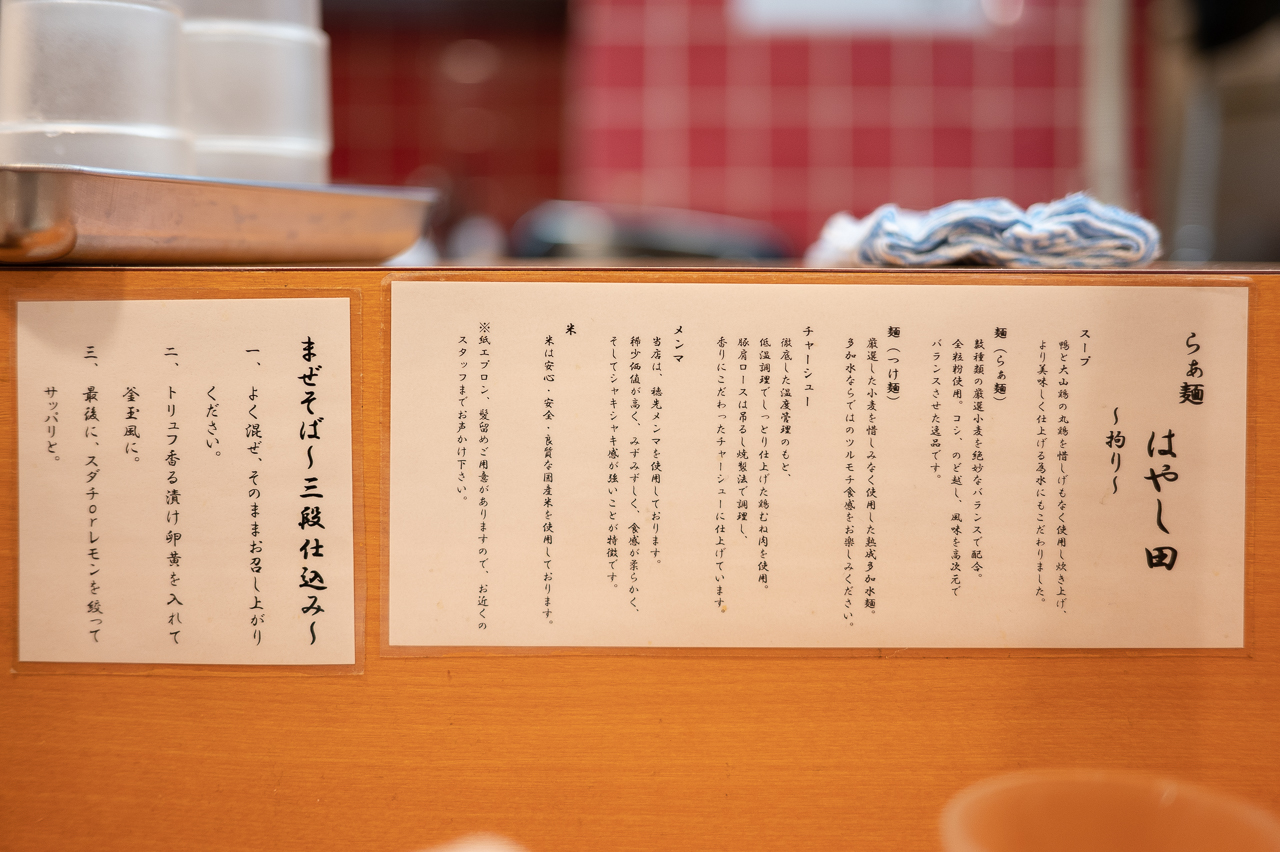 らぁ麺
はやし田
～拘り～
スープ
鴨と大山鶏の丸鶏を惜しげもなく使用し炊き上げ、
より美味しく仕上げる為水にもこだわりました。
麺（らぁ麺）
数種類の厳選小麦を絶妙なバランスで配合。
全粒粉使用。コシ、のど越し、風味を高次元で
バランスさせた逸品です。
麺（つけ麺）
厳選した小麦を惜しみなく使用した熟成多加水麺。
多加水ならではのツルモチ食感をお楽しみください。
チャーシュー
徹底した温度管理のもと、
低温調理でしっとり仕上げた鶏むね肉を使用。
豚肩ロースは吊るし焼製法で調理し、
香りにこだわったチャーシューに仕上げています。
メンマ
当店は、穂先メンマを使用しております。
稀少価値が高く、みずみずしく、食感が柔らかく、
そしてシャキシャキ感が強いことが特徴です。
米
米は安心・安全・良質な国産米を使用しております。
※紙エプロン、髪留めご用意がありますので、お近くの
スタッフまでお声かけ下さい。
まぜそば～三段仕込み～
一、よく混ぜ、そのままお召し上がり
ください。
二、トリュフ香る漬け卵黄を入れて
釜玉風に。
三、最後に、スダチorレモンを絞って
サッパリと。